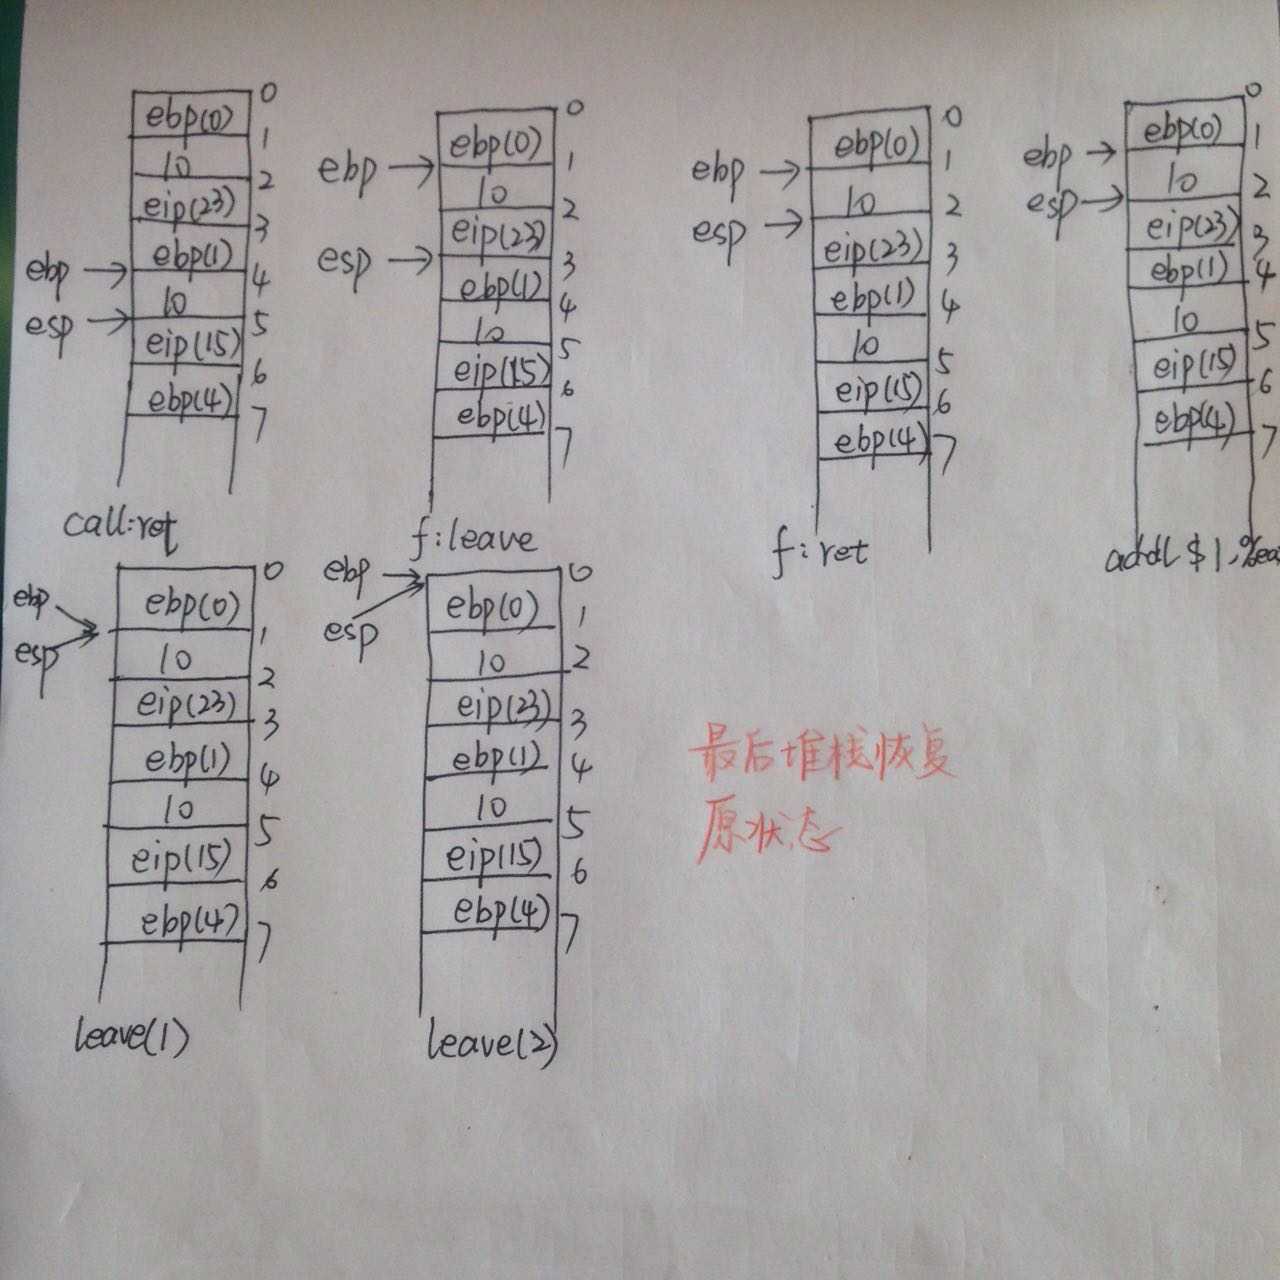 0
ebp(0)
1
10
2
eip(23)
3
ebp(1)
ebp
4
10
esp
5
eip(15)
6
ebp(4)
7
call:ret
0
ebp(0)
ebp
1
10
2
eip(23)
esp
3
ebp(1)
4
10
5
eip(15)
6
ebp(4)
7
f:leave
0
ebp(0)
ebp
1
10
2
esp
eip(23)
3
ebp(1)
4
10
5
eip(15)
6
ebp(4)
7
f:ret
0
ebp(0)
1
ebp
10
2
esp
eip(23)
3
ebp(1)
4
10
5
eip(15)
6
ebp(4)
7
addl $1,%ea
0
ebp
ebp(0)
1
esp
10
2
eip(23)
3
ebp(1)
4
10
5
eip(15)
6
ebp(4)
7
leave(1)
ebp
0
ebp(0)
1
esp
10
2
eip(23)
3
ebp(1)
4
10
5
eip(15)
6
ebp(4)
7
leave(2)
最后堆栈恢复
原状态